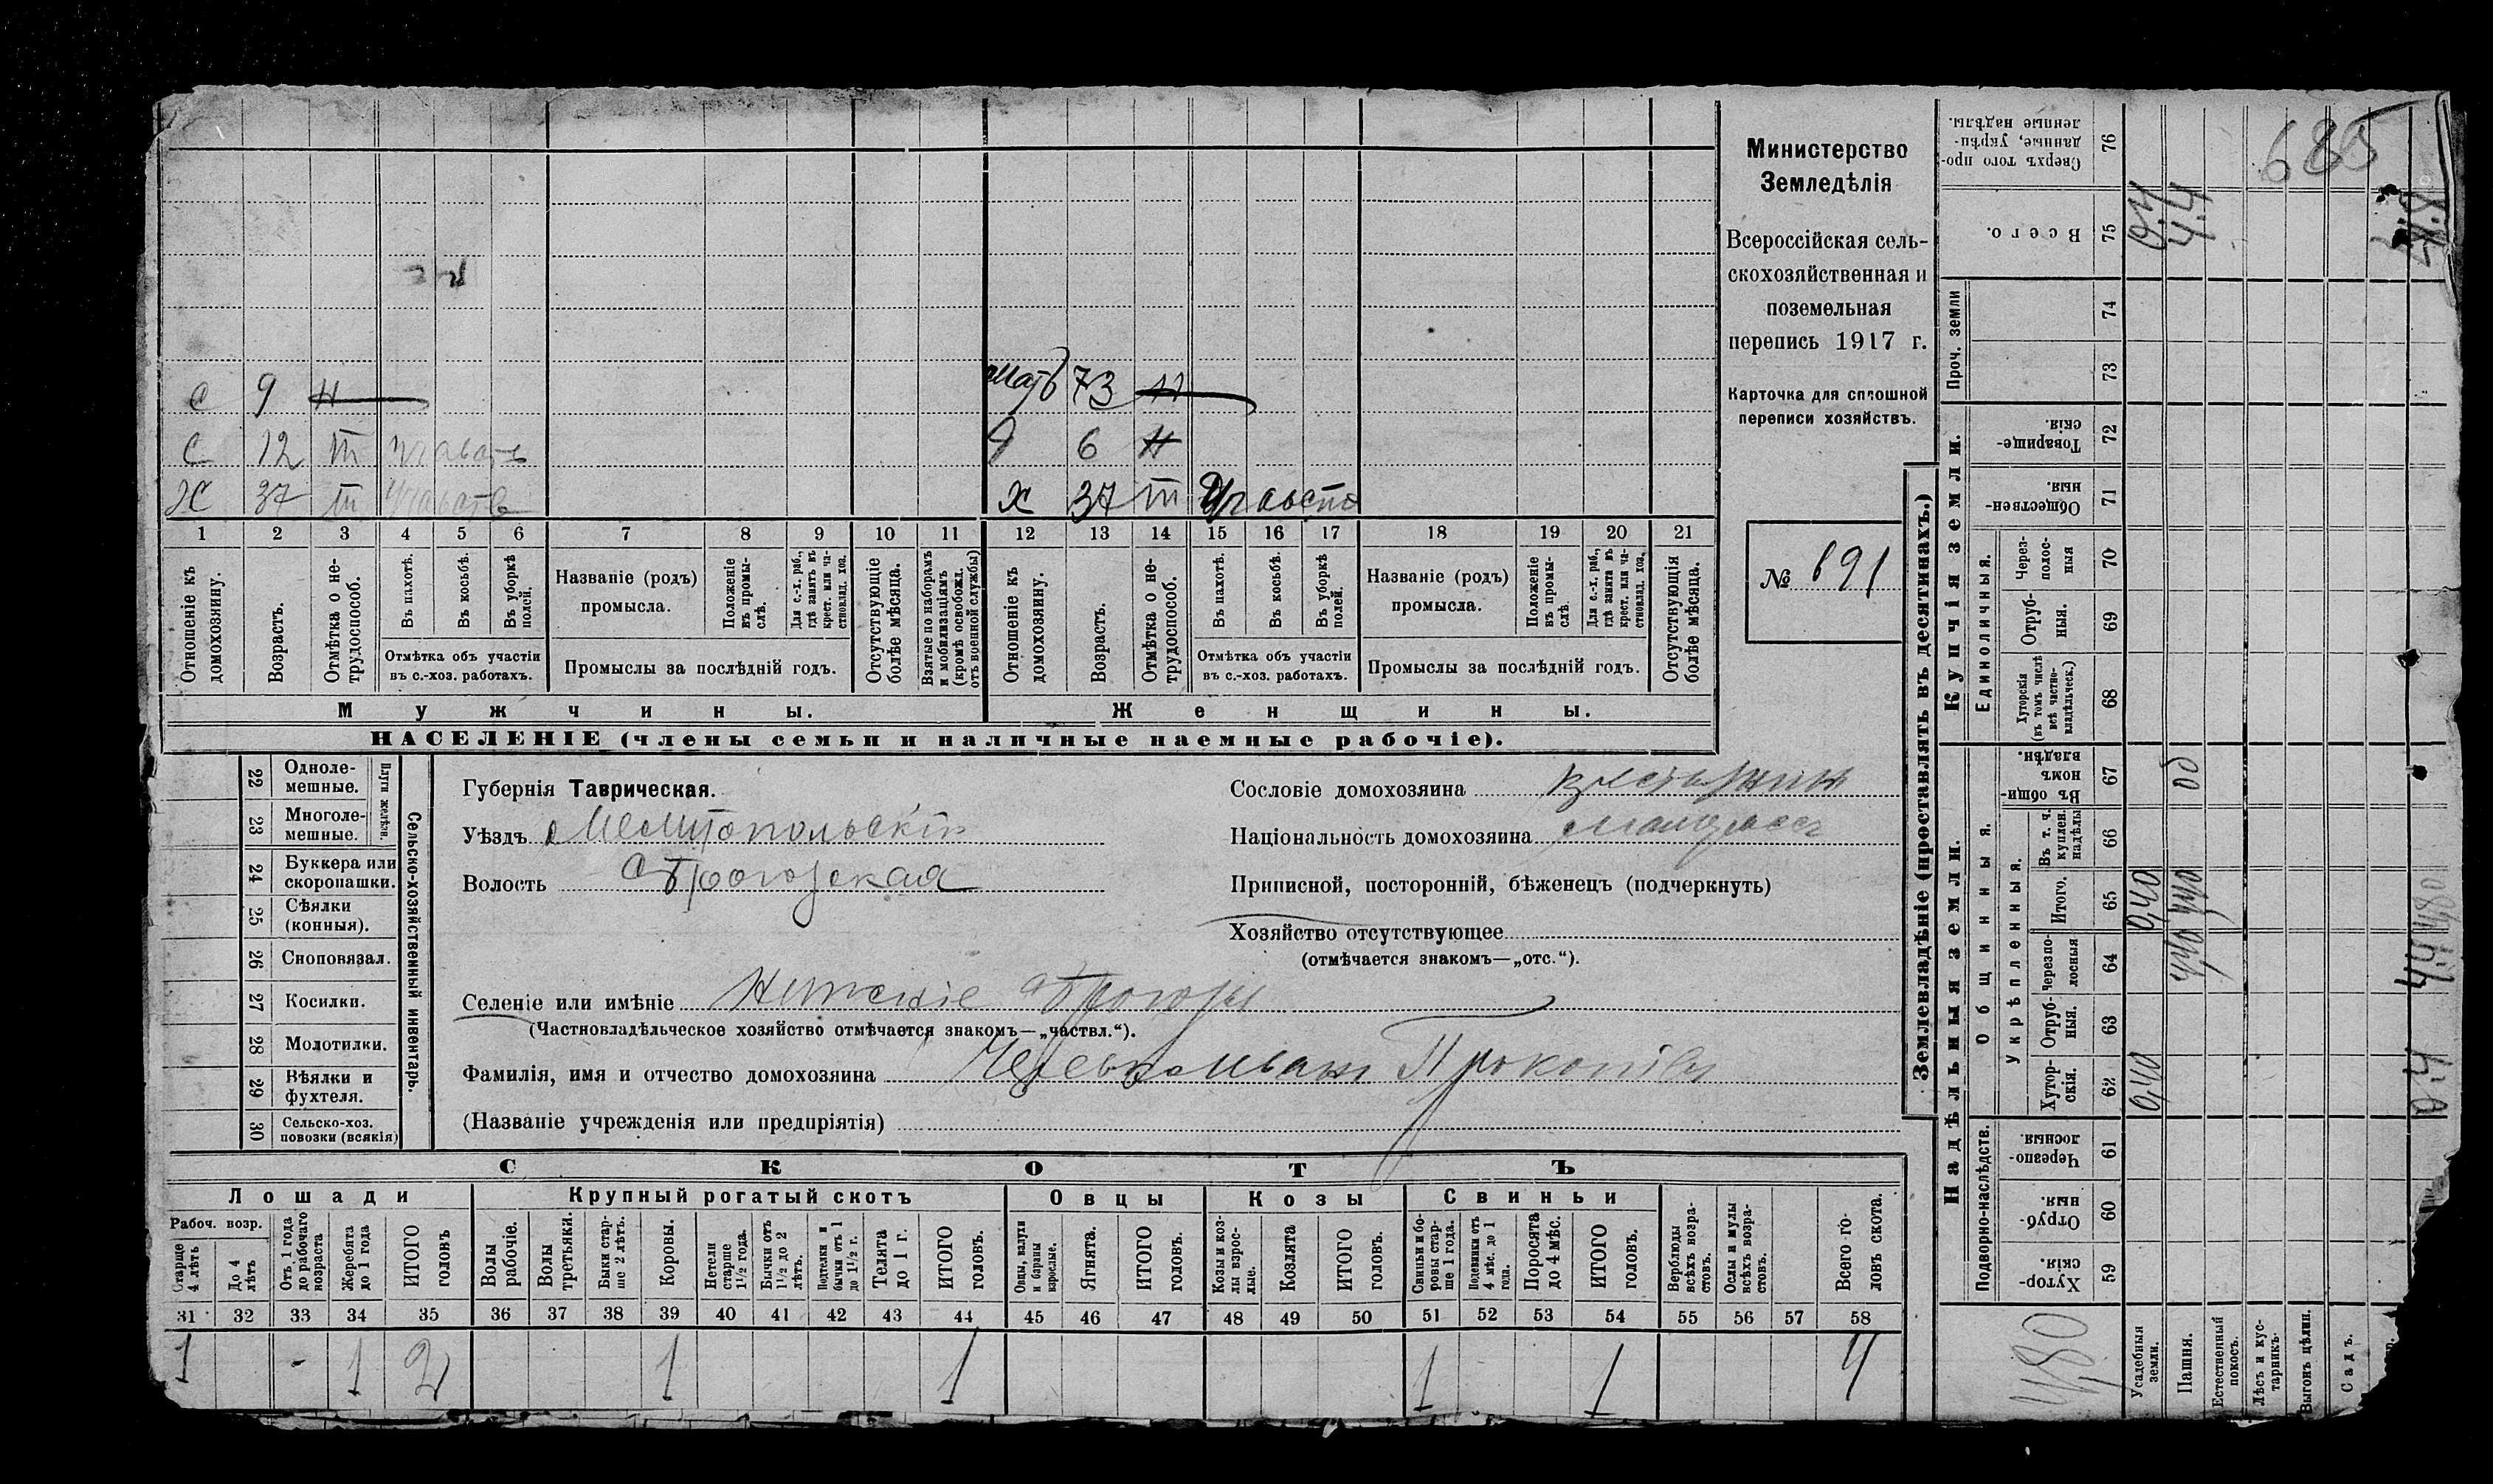 Министерство
Земледѣлія
Всероссійская сель-
скохозяйственная и
поземельная
перепись 1917 г.
Карточка для сплошной
переписи хозяйствъ.
№ 691
685
С 9 Н
С 12 т
Х 37 т
мать 73 Н
6 Н
Х 37 т
1 2 3 4 5 6 7 8 9 10 11 12 13 14 15 16 17 18 19 20 21
Отношеніе къ домохозяину.
Возрастъ.
Отмѣтка о не-трудоспособ.
Въ пахотѣ.
Въ косьбѣ.
Въ уборкѣ полей.
Отмѣтка объ участіи
въ с.-хоз. работахъ.
Названіе (родъ)
промысла.
Положеніе въ промы-слѣ.
Для с.-х. раб., гдѣ занятъ въ крест. или ча-стновлад. хоз.
Промыслы за послѣдній годъ.
Отсутствующіе болѣе мѣсяца.
Взятые по наборамъ и мобилизаціямъ (кромѣ освобожд. отъ военной службы)
Отношеніе къ домохозяину.
Возрастъ.
Отмѣтка о не-трудоспособ.
Въ пахотѣ.
Въ косьбѣ.
Въ уборкѣ полей.
Отмѣтка объ участіи
въ с.-хоз. работахъ.
Названіе (родъ)
промысла.
Положеніе въ промы-слѣ.
Для с.-х. раб., гдѣ занята въ крест. или ча-стновлад. хоз.
Промыслы за послѣдній годъ.
Отсутствующія болѣе мѣсяца.
Мужчины.
Женщины.
НАСЕЛЕНІЕ (члены семьи и наличные наемные рабочіе).
22 Одноле-мешные.
23 Многоле-мешные.
Плуги желѣзн.
24 Буккера или скоропашки.
25 Сѣялки (конныя).
26 Сноповязал.
27 Косилки.
28 Молотилки.
29 Вѣялки и фухтеля.
30 Сельско-хоз. повозки (всякія)
Сельско-хозяйственный инвентарь.
Губернія Таврическая.
Уѣздъ Мелитопольскій
Волость
Селеніе или имѣніе
(Частновладѣльческое хозяйство отмѣчается знакомъ—„частвл.“).
Фамилія, имя и отчество домохозяина
(Названіе учрежденія или предпріятія)
Сословіе домохозяина
Національность домохозяина
Приписной, посторонній, бѣженецъ (подчеркнуть)
Хозяйство отсутствующее
(отмѣчается знакомъ—„отс.“).
СКОТЪ
Лошади
Крупный рогатый скотъ
Овцы
Козы
Свиньи
Рабоч. возр.
Старше 4 лѣтъ
До 4 лѣтъ
Отъ 1 года до рабочаго возраста
Жеребята до 1 года
ИТОГО головъ
Волы рабочіе.
Волы третьяки.
Быки стар-ше 2 лѣтъ.
Коровы.
Нетели старше 1½ года.
Бычки отъ 1½ до 2 лѣтъ.
Подтелки и бычки отъ 1 до 1½ г.
Телята до 1 г.
ИТОГО головъ.
Овцы, валухи и бараны взрослые.
Ягнята.
ИТОГО головъ.
Козы и коз-лы взрос-лые.
Козлята
ИТОГО головъ.
Свиньи и бо-ровы стар-ше 1 года.
Подсвинки отъ 4 мѣс. до 1 года.
Поросята до 4 мѣс.
ИТОГО головъ.
Верблюды всѣхъ возра-стовъ.
Ослы и мулы всѣхъ возра-стовъ.
Всего го-ловъ скота.
31 32 33 34 35 36 37 38 39 40 41 42 43 44 45 46 47 48 49 50 51 52 53 54 55 56 57 58
1 - 1 2 1 1 1 1 4
Землевладѣніе (проставлять въ десятинахъ.)
Надѣльныя земли.
Купчія земли.
Проч. земли
Подворно-наслѣдств.
Общинныя.
Укрѣпленныя.
Единоличныя.
76 Сверхъ того про-данные, укрѣп-ленные надѣлы.
75 Всего.
74
73
72 Товарище-скія.
71 Обществен-ныя.
70 Через-полос-ныя
69 Отруб-ныя.
68 Хуторскія (въ томъ числѣ всѣ частно-владѣльческ.)
67 Въ общи-номъ владѣн.
66 Въ т. ч. куплен. надѣлы
65 Итого.
64 Черезпо-лосныя
63 Отруб-ныя.
62 Хутор-скія.
61 Черезпо-лосныя.
60 Отруб-ныя.
59 Хутор-скія.
Усадебныя земли.
Пашня.
Естественный покосъ.
Лѣсъ и кус-тарникъ.
Выгонъ цѣлин.
Садъ.
0,4
4.4
0,40
0,40
4,80
4.8
0.4